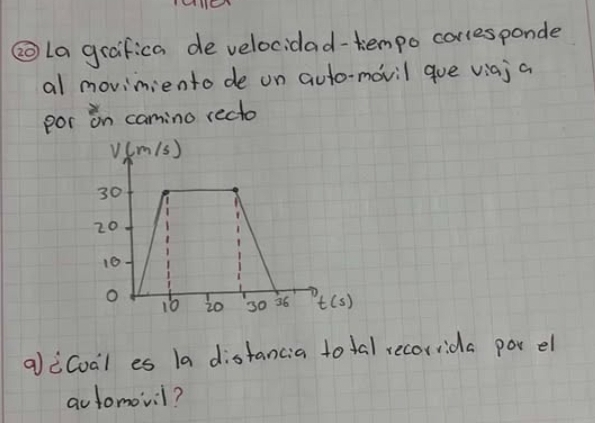 Taller
20 La gráfica de velocidad-tiempo corresponde
al movimiento de un auto-móvil que viaja
por un camino recto
V(m/s)
30
20
10
0
10 20 30 36 t(s)
a) ¿Cuál es la distancia total recorrida por el
automóvil?